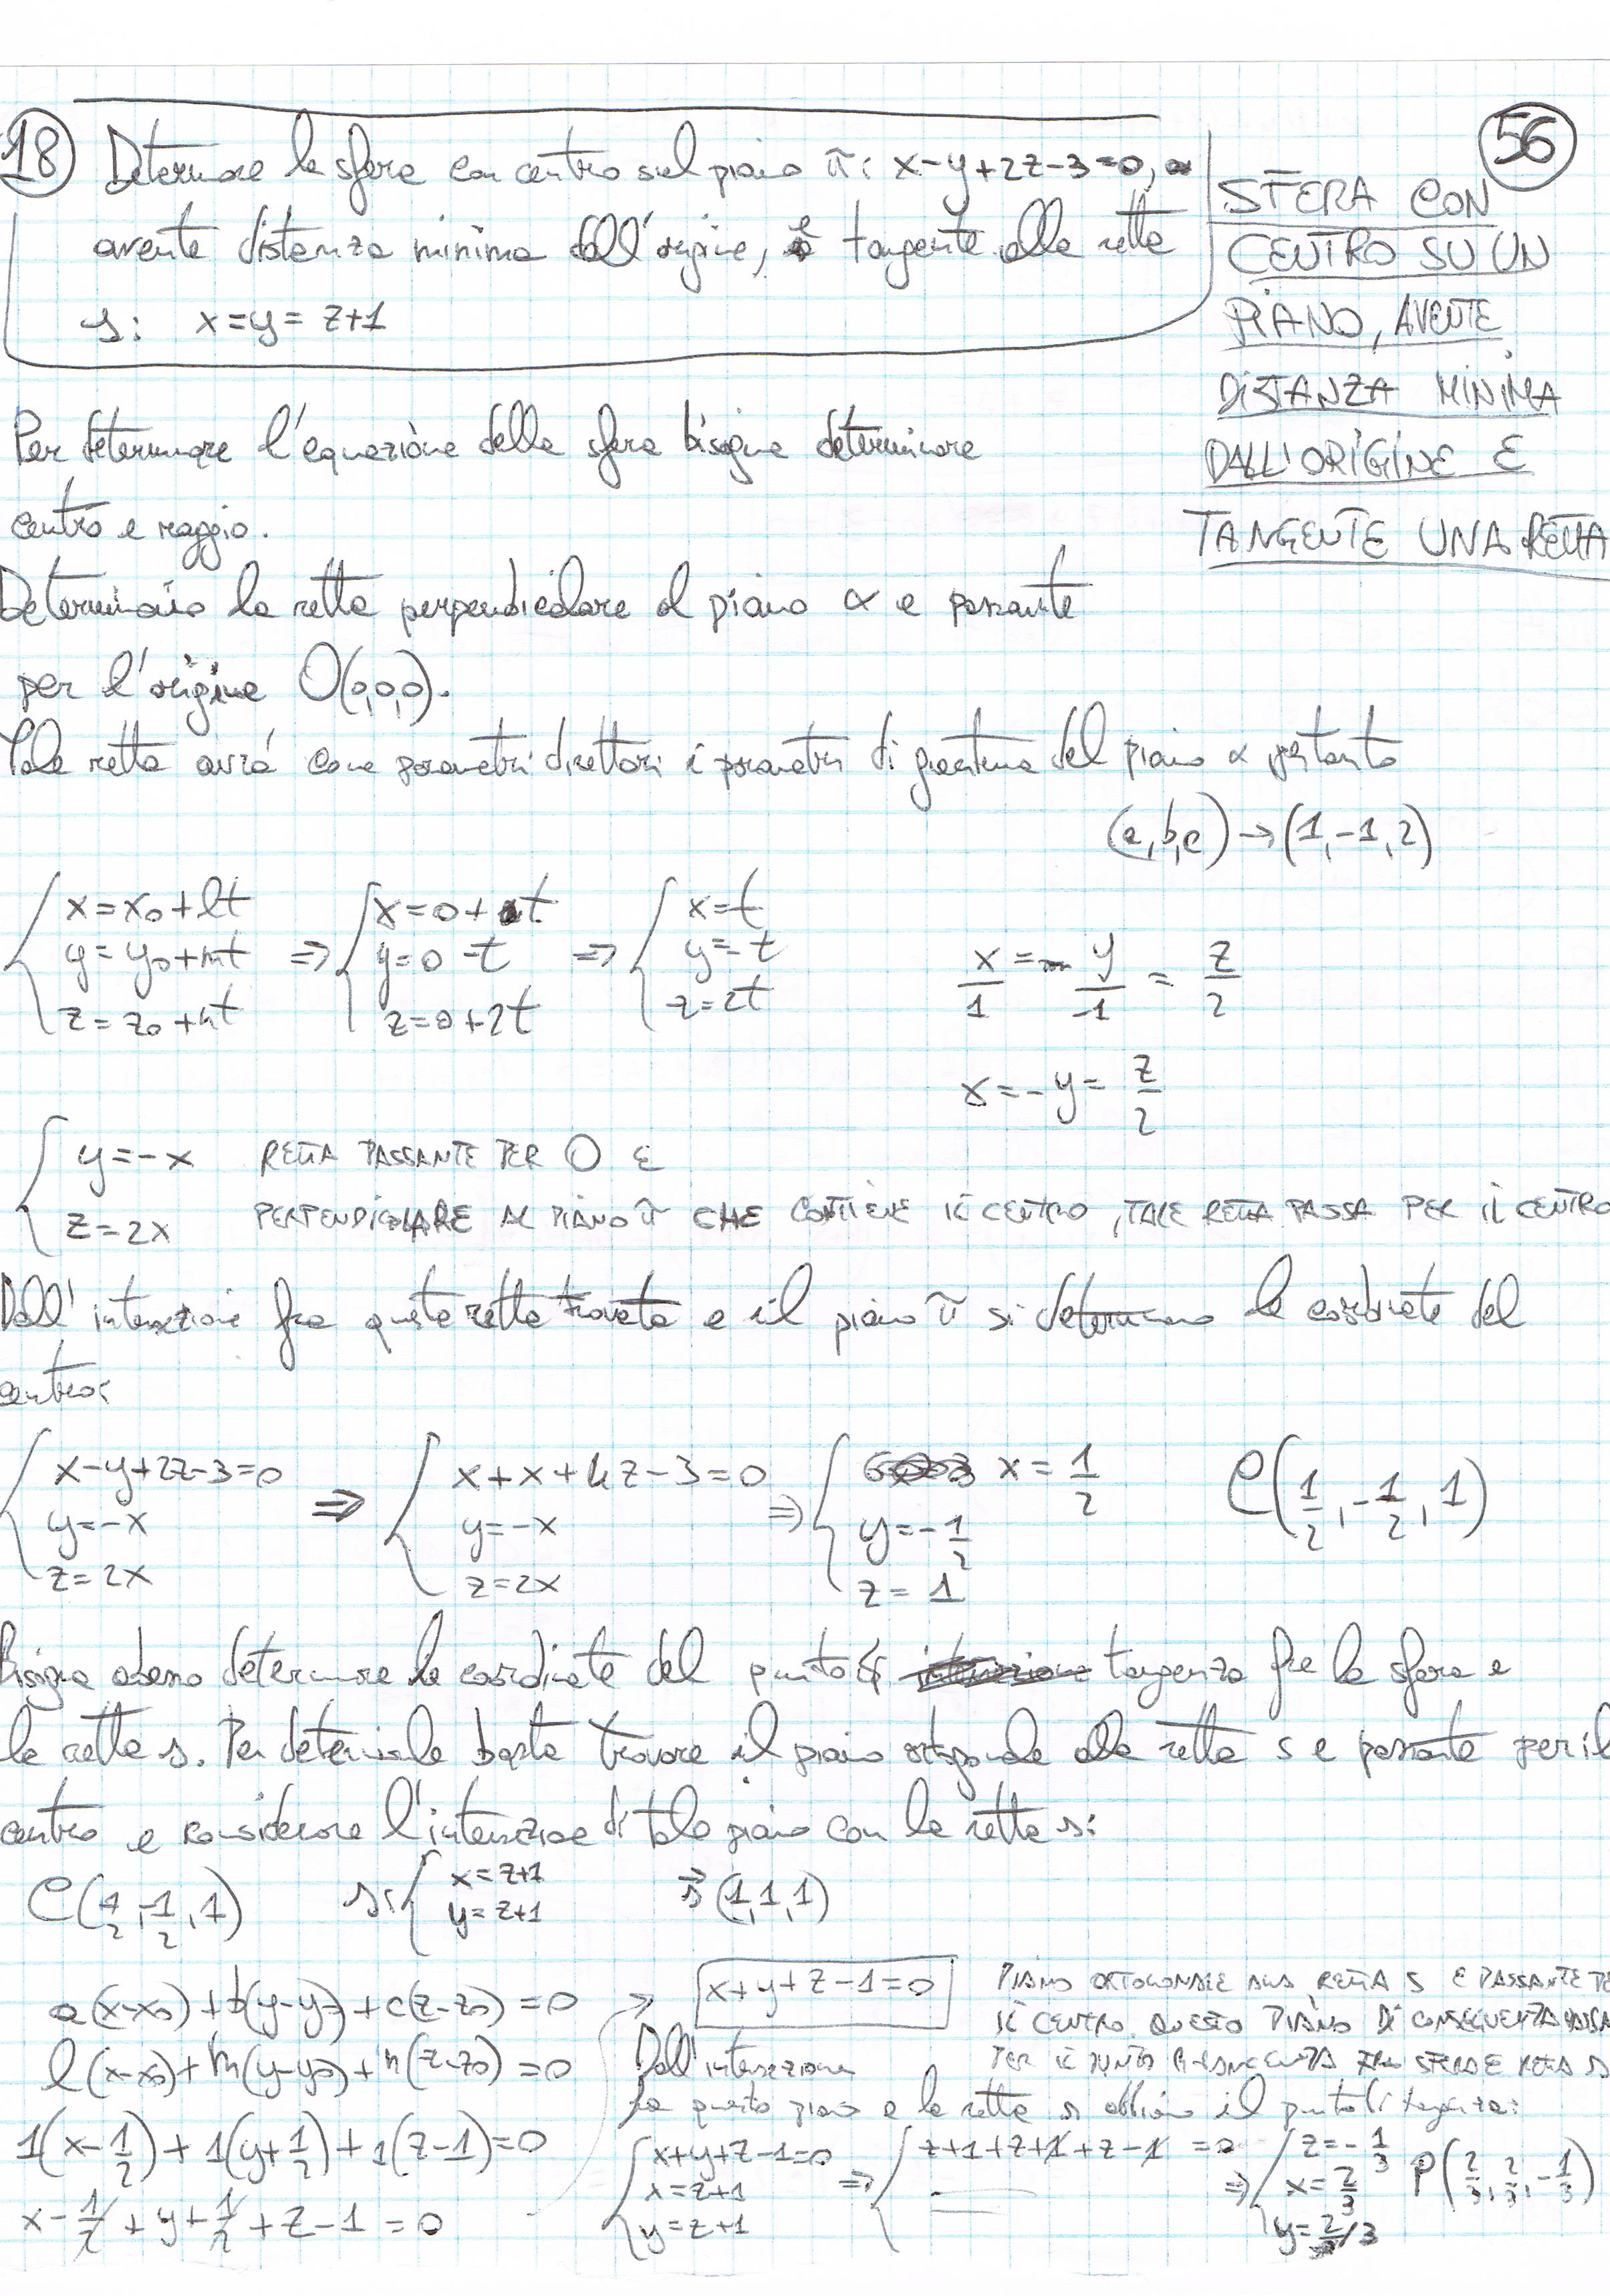 18 Determinare la sfera con centro sul piano π: x-y+2z-3=0, a
avente distanza minima dall'origine, e tangente alla retta
s: x=y=z+1
56
SFERA CON
CENTRO SU UN
PIANO, AVENTE
DISTANZA MINIMA
DALL'ORIGINE E
TANGENTE UNA RETTA
Per determinare l'equazione della sfera bisogna determinare
centro e raggio.
Determiniamo la retta perpendicolare al piano α e passante
per l'origine O(0,0,0).
Tale retta avrà come parametri direttori i parametri di giacitura del piano α pertanto
(a,b,c) → (1,-1,2)
{ x=x₀+lt ⇒ { x=0+t ⇒ { x=t
y=y₀+mt y=0-t y=-t
z=z₀+nt z=0+2t z=2t
x/1 = y/-1 = z/2
x=-y= z/2
{ y=-x RETTA PASSANTE PER O E
z=2x PERPENDICOLARE AL PIANO π CHE CONTIENE IL CENTRO, TALE RETTA PASSA PER IL CENTRO
Dall'intersezione fra questa retta trovata e il piano π si determinano le coordinate del
centro:
{ x-y+2z-3=0 ⇒ { x+x+4z-3=0 ⇒ { x= 1/2 C(1/2, -1/2, 1)
y=-x y=-x y=-1/2
z=2x z=2x z=1
Bisogna adesso determinare le coordinate del punto di tangenza fra la sfera e
la retta s. Per determinarle basta trovare il piano ortogonale alla retta s e passante per il
centro e considerare l'intersezione di tale piano con la retta s:
C(1/2, -1/2, 1) s: { x=z+1 s⃗ (1,1,1)
y=z+1
a(x-x₀)+b(y-y₀)+c(z-z₀)=0
l(x-x₀)+m(y-y₀)+n(z-z₀)=0
1(x-1/2)+1(y+1/2)+1(z-1)=0
x-1/2+y+1/2+z-1=0
→ x+y+z-1=0
PIANO ORTOGONALE ALLA RETTA S E PASSANTE PE
IL CENTRO. QUESTO PIANO DI CONSEGUENZA PASSA
PER IL PUNTO DI TANGENZA TRA SFERA E RETTA S
Dall'intersezione
fra questo piano e la retta s abbiamo il punto di tangenza:
{ x+y+z-1=0 ⇒ { z+1+z+1+z-1=0 ⇒ { z=-1/3 P(2/3, 2/3, -1/3)
x=z+1 x=2/3
y=z+1 y=2/3